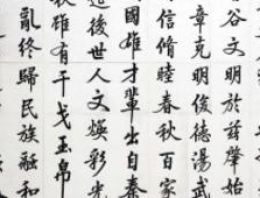 谷文明於茲肇始
章克明俊德湯武
信脩睦春秋百家
國雄才輩出自秦
後世人文煥彩光
狄雖有干戈玉帛
亂終歸民族融和